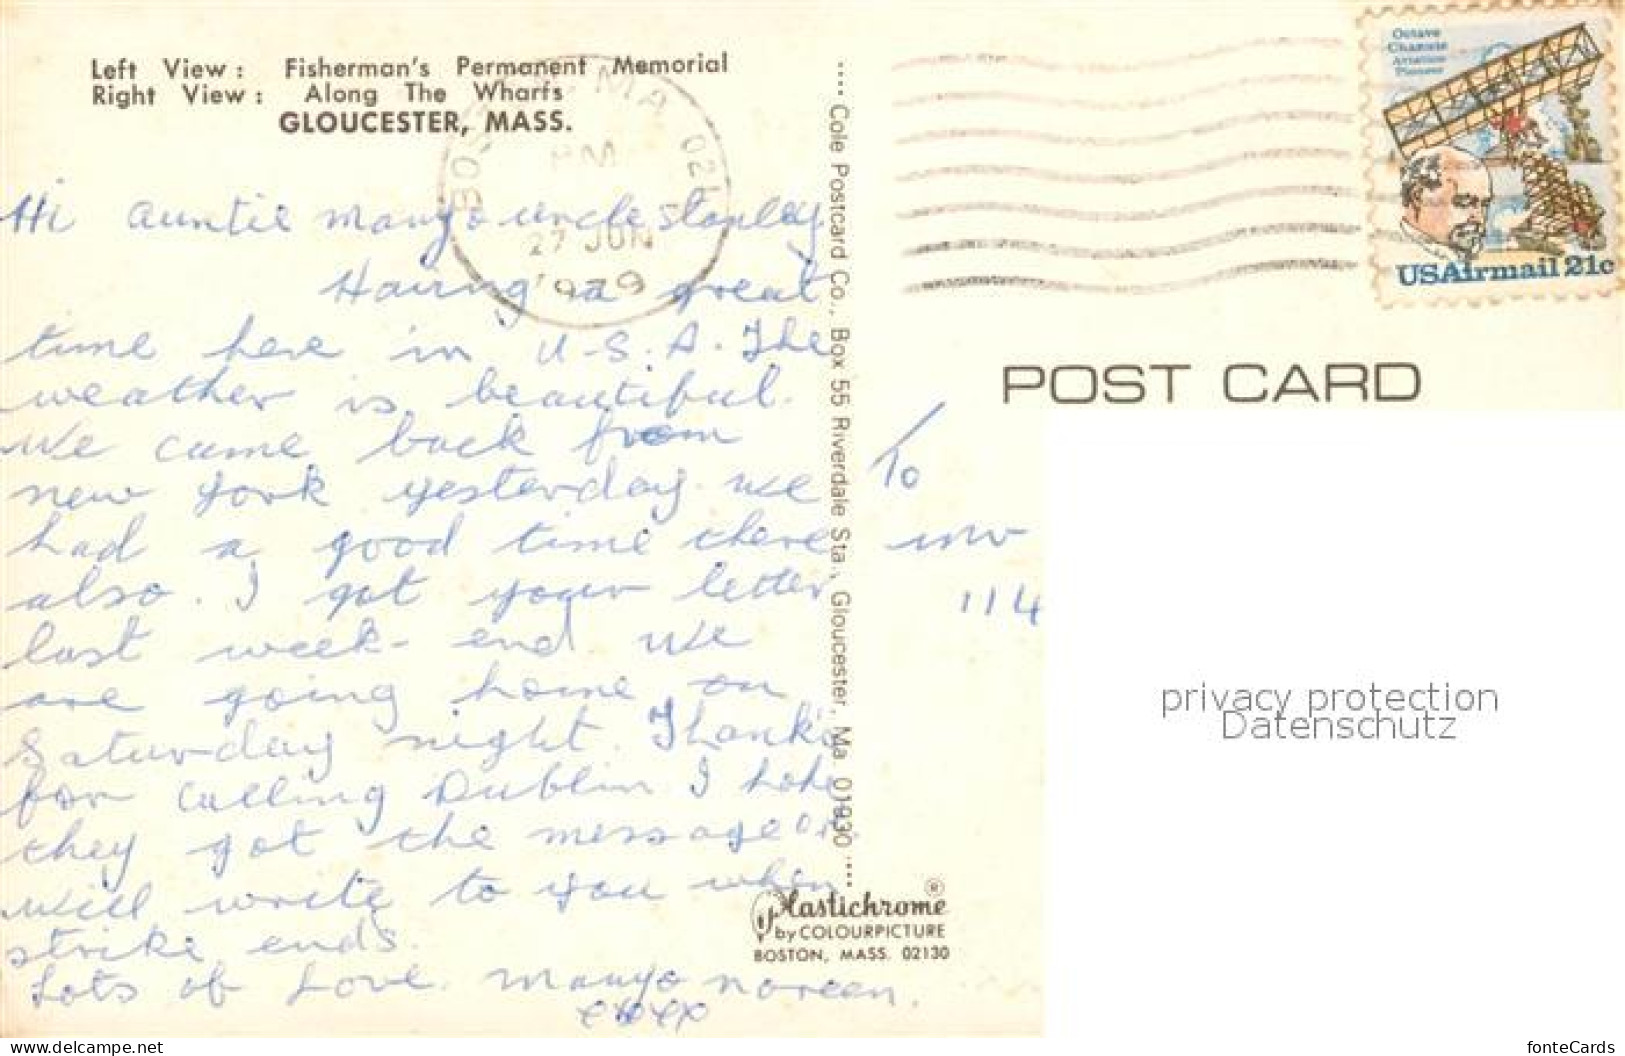 Left View : Fisherman's Permanent Memorial
Right View : Along The Wharfs
GLOUCESTER, MASS.
Hi Auntie Mary & uncle Stanley
Having a great
time here in U.S.A. The
weather is beautiful.
We came back from
new york yesterday. we
had a good time there
also. I got your letter
last week-end we
are going home on
Saturday night. Thank's
for calling Dublin I hope
they got the message
will write to you when
strike ends.
Lots of Love. Mary & noreen.
xxxx
Cole Postcard Co., Box 55 Riverdale Sta., Gloucester, Ma. 01930
Plastichrome ®
by COLOURPICTURE
BOSTON, MASS. 02130
MA 021
PM
27 JUN
1979
Octave
Chanute
Aviation
Pioneer
USAirmail 21c
POST CARD
To
114
privacy protection
Datenschutz
www.delcampe.net
fonteCards